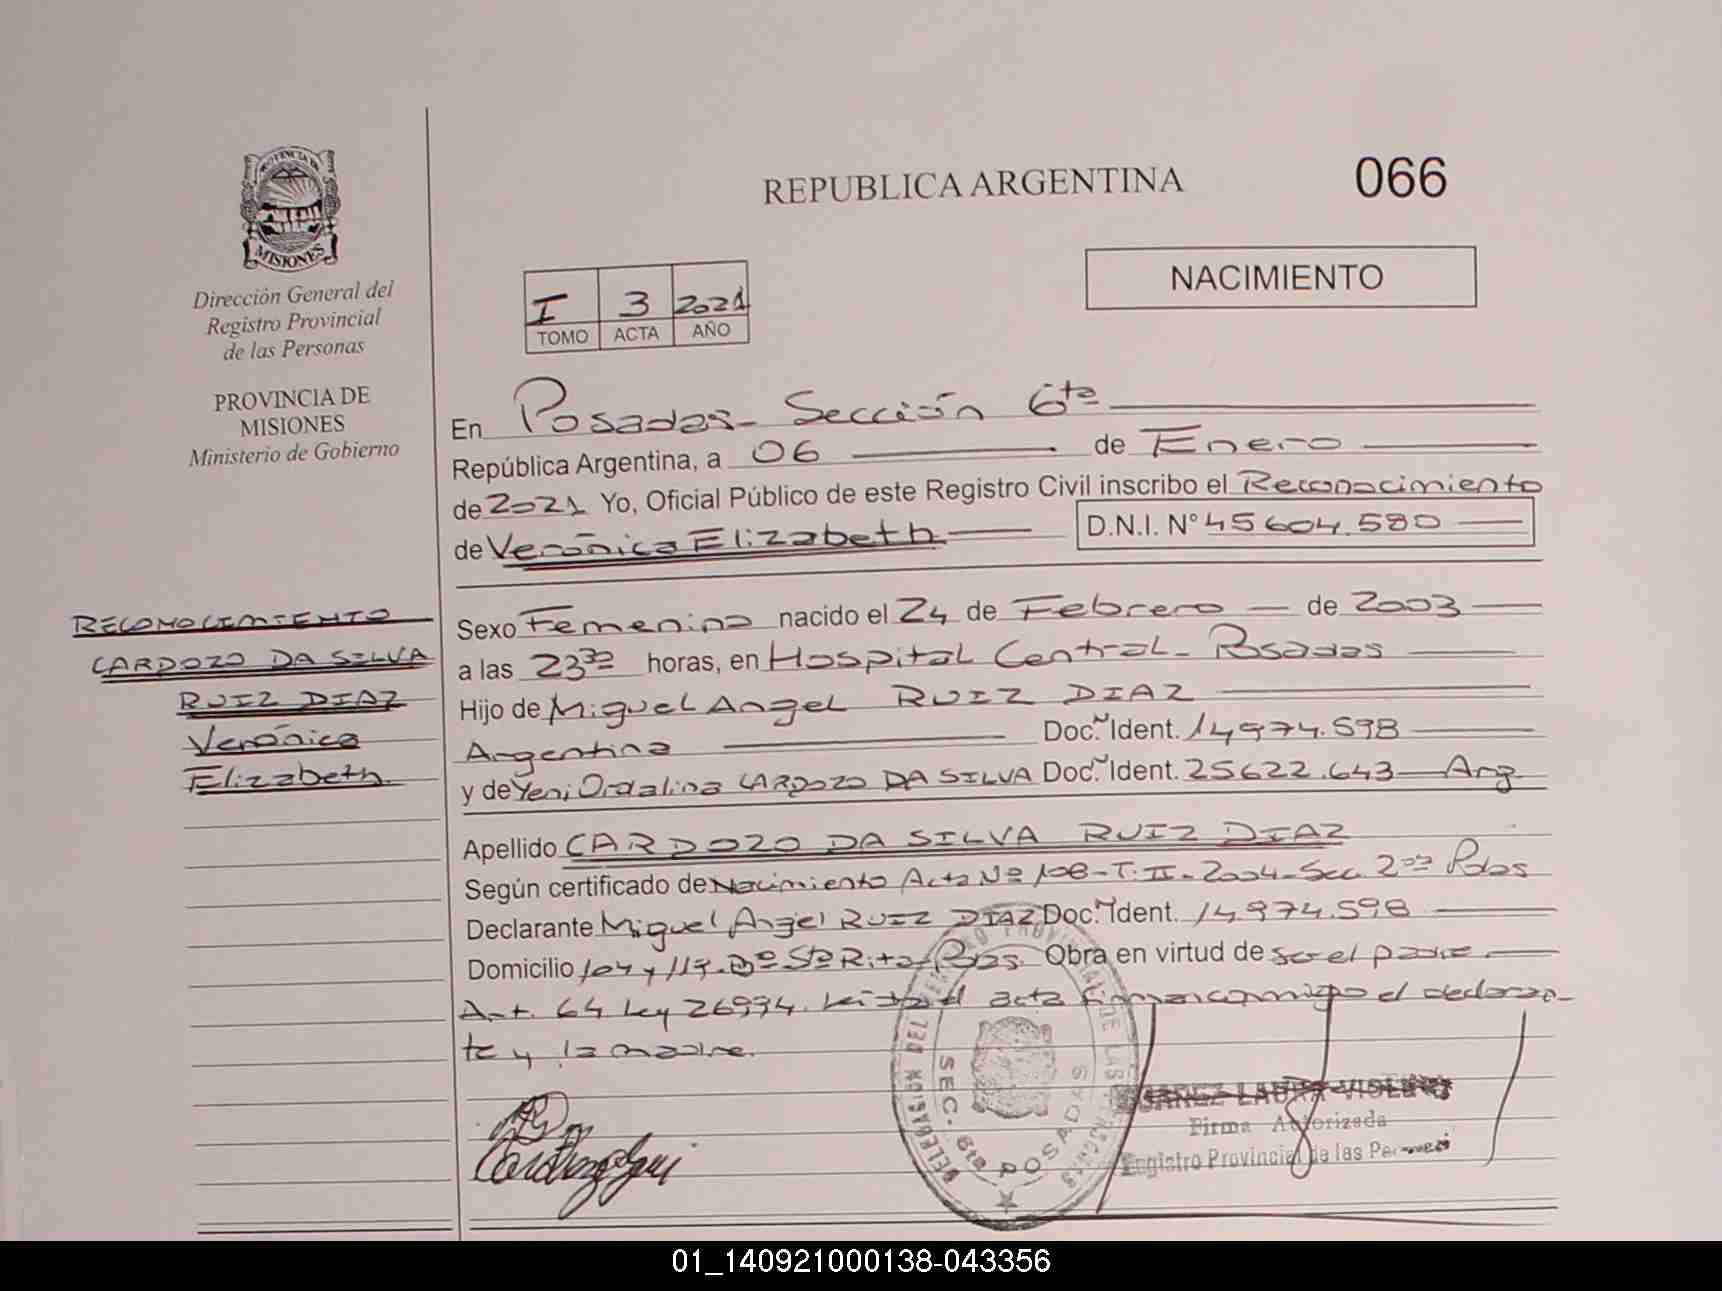 REPUBLICA ARGENTINA
066
PROVINCIA DE
MISIONES
Dirección General del
Registro Provincial
de las Personas
PROVINCIA DE
MISIONES
Ministerio de Gobierno
NACIMIENTO
I 3 2021
TOMO ACTA AÑO
En Posadas - Sección 6ta
República Argentina, a 06 de Enero
de 2021 Yo, Oficial Público de este Registro Civil inscribo el Reconocimiento
de Verónica Elizabeth D.N.I. N° 45604.580
RECONOCIMIENTO
CARDOZO DA SILVA
RUIZ DIAZ
Verónica
Elizabeth
Sexo Femenino nacido el 24 de Febrero de 2003
a las 23 30 horas, en Hospital Central - Posadas
Hijo de Miguel Angel RUIZ DIAZ
Argentina Doc. Ident. 14974.598
y de Yeni Ordalina CARDOZO DA SILVA Doc. Ident. 25622.643 Arg
Apellido CARDOZO DA SILVA RUIZ DIAZ
Según certificado de Nacimiento Acta Nº 108 - T. II - 2004 - Sec. 2da Pdas
Declarante Miguel Angel RUIZ DIAZ Doc. Ident. 14974.598
Domicilio 104 y 117 - Bº Sta Rita - Pdas. Obra en virtud de ser el padre
Art. 64 Ley 26994. acta firman conmigo el declaran-
te y la madre.
SEC. 6ta POSADAS
LAURA
Firma Autorizada
Registro Provincial de las Personas
01_140921000138-043356